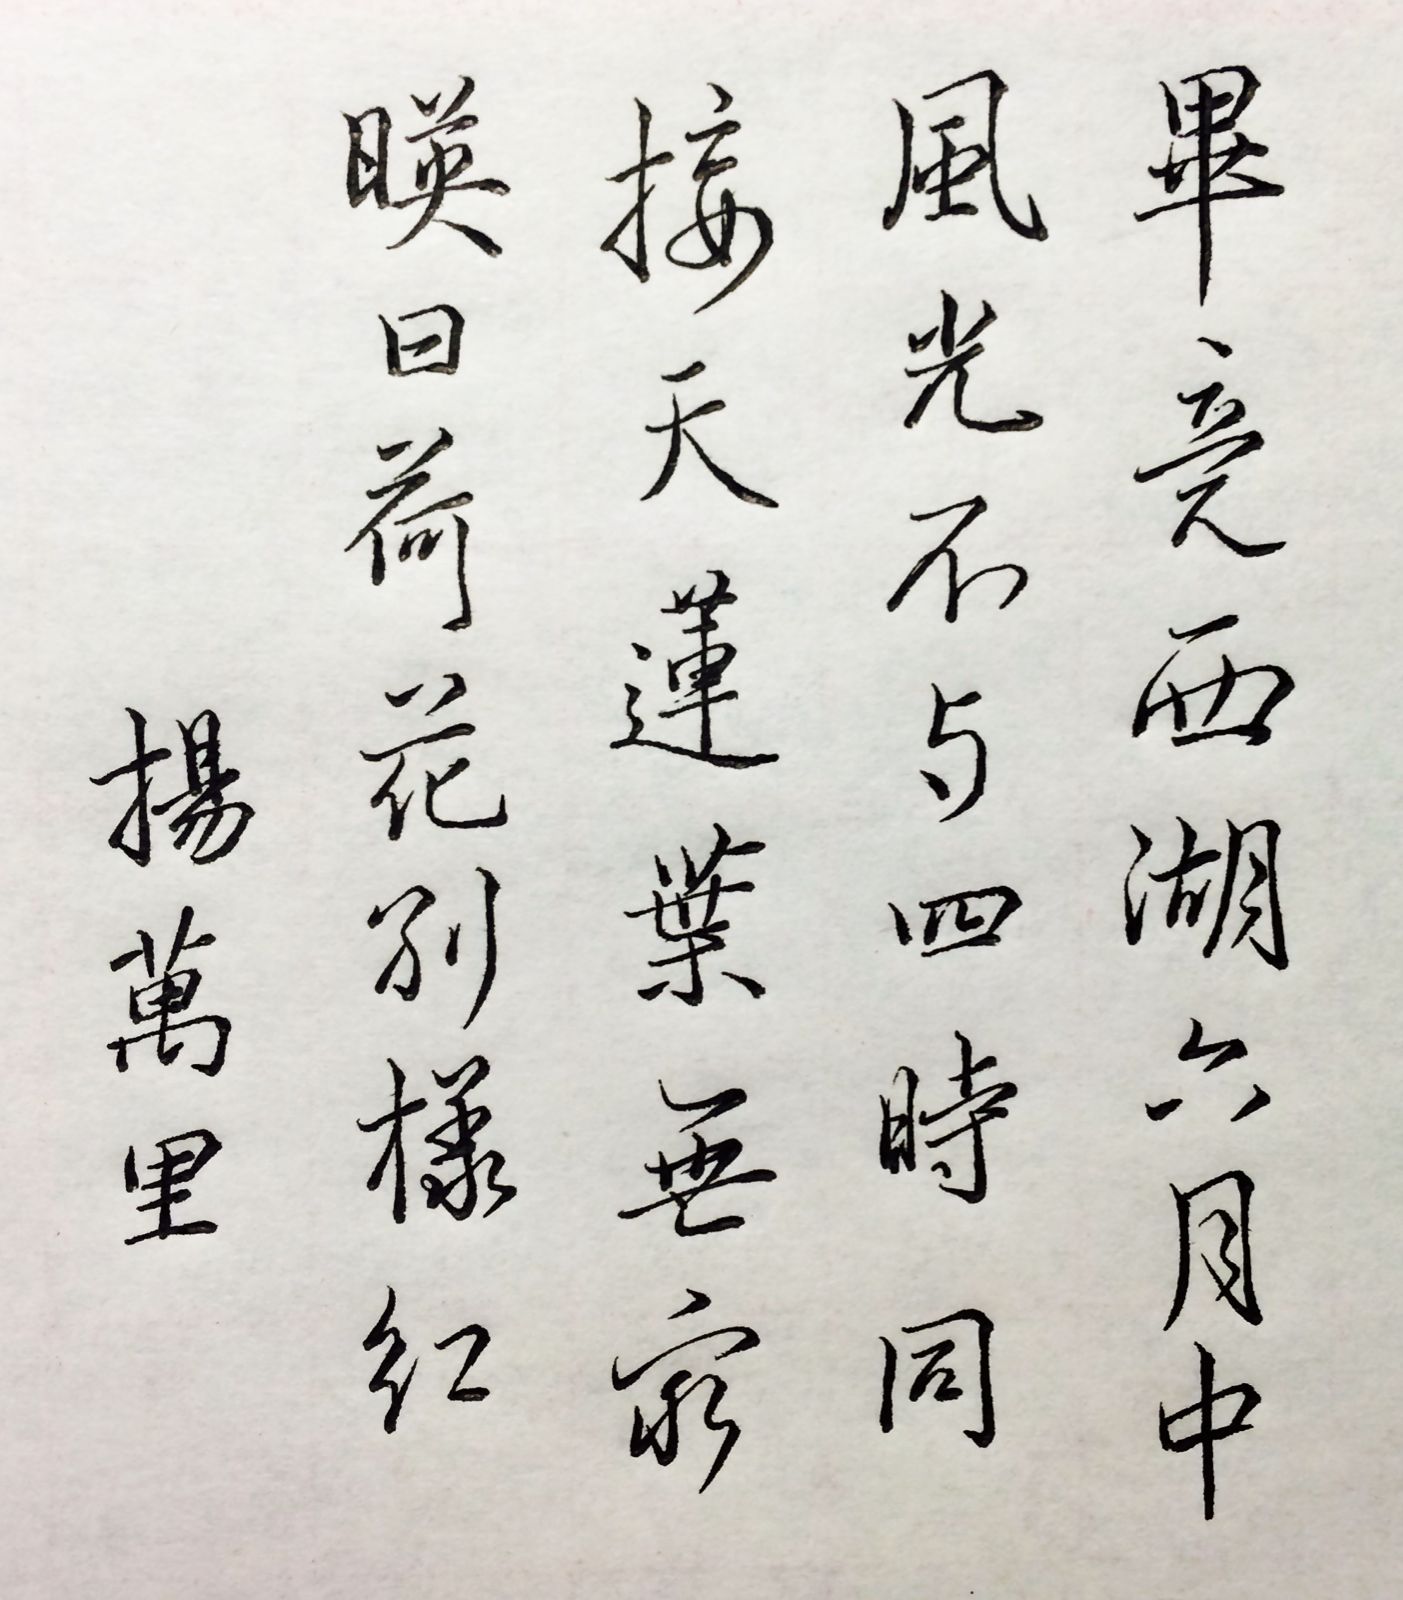 畢竟西湖六月中
風光不与四時同
接天蓮葉無窮
暎日荷花別樣紅
揚萬里